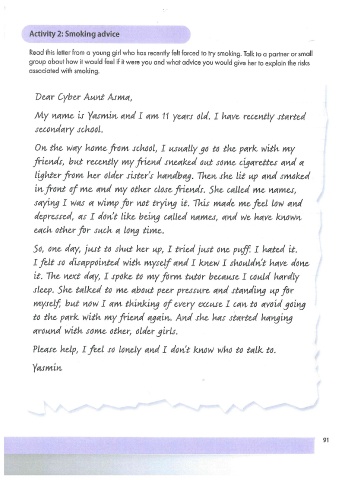 Activity 2: Smoking advice
Read this letter from a young girl who has recently felt forced to try smoking. Talk to a partner or small
group about how it would feel if it were you and what advice you would give her to explain the risks
associated with smoking.
Dear Cyber Aunt Asma,
My name is Yasmin and I am 11 years old. I have recently started
secondary school.
On the way home from school, I usually go to the park with my
friends, but recently my friend sneaked out some cigarettes and a
lighter from her older sister's handbag. Then she lit up and smoked
in front of me and my other close friends. She called me names,
saying I was a wimp for not trying it. This made me feel low and
depressed, as I don't like being called names, and we have known
each other for such a long time.
So, one day, just to shut her up, I tried just one puff. I hated it.
I felt so disappointed with myself and I knew I shouldn't have done
it. The next day, I spoke to my form tutor because I could hardly
sleep. She talked to me about peer pressure and standing up for
myself, but now I am thinking of every excuse I can to avoid going
to the park with my friend again. And she has started hanging
around with some other, older girls.
Please help, I feel so lonely and I don't know who to talk to.
Yasmin
91